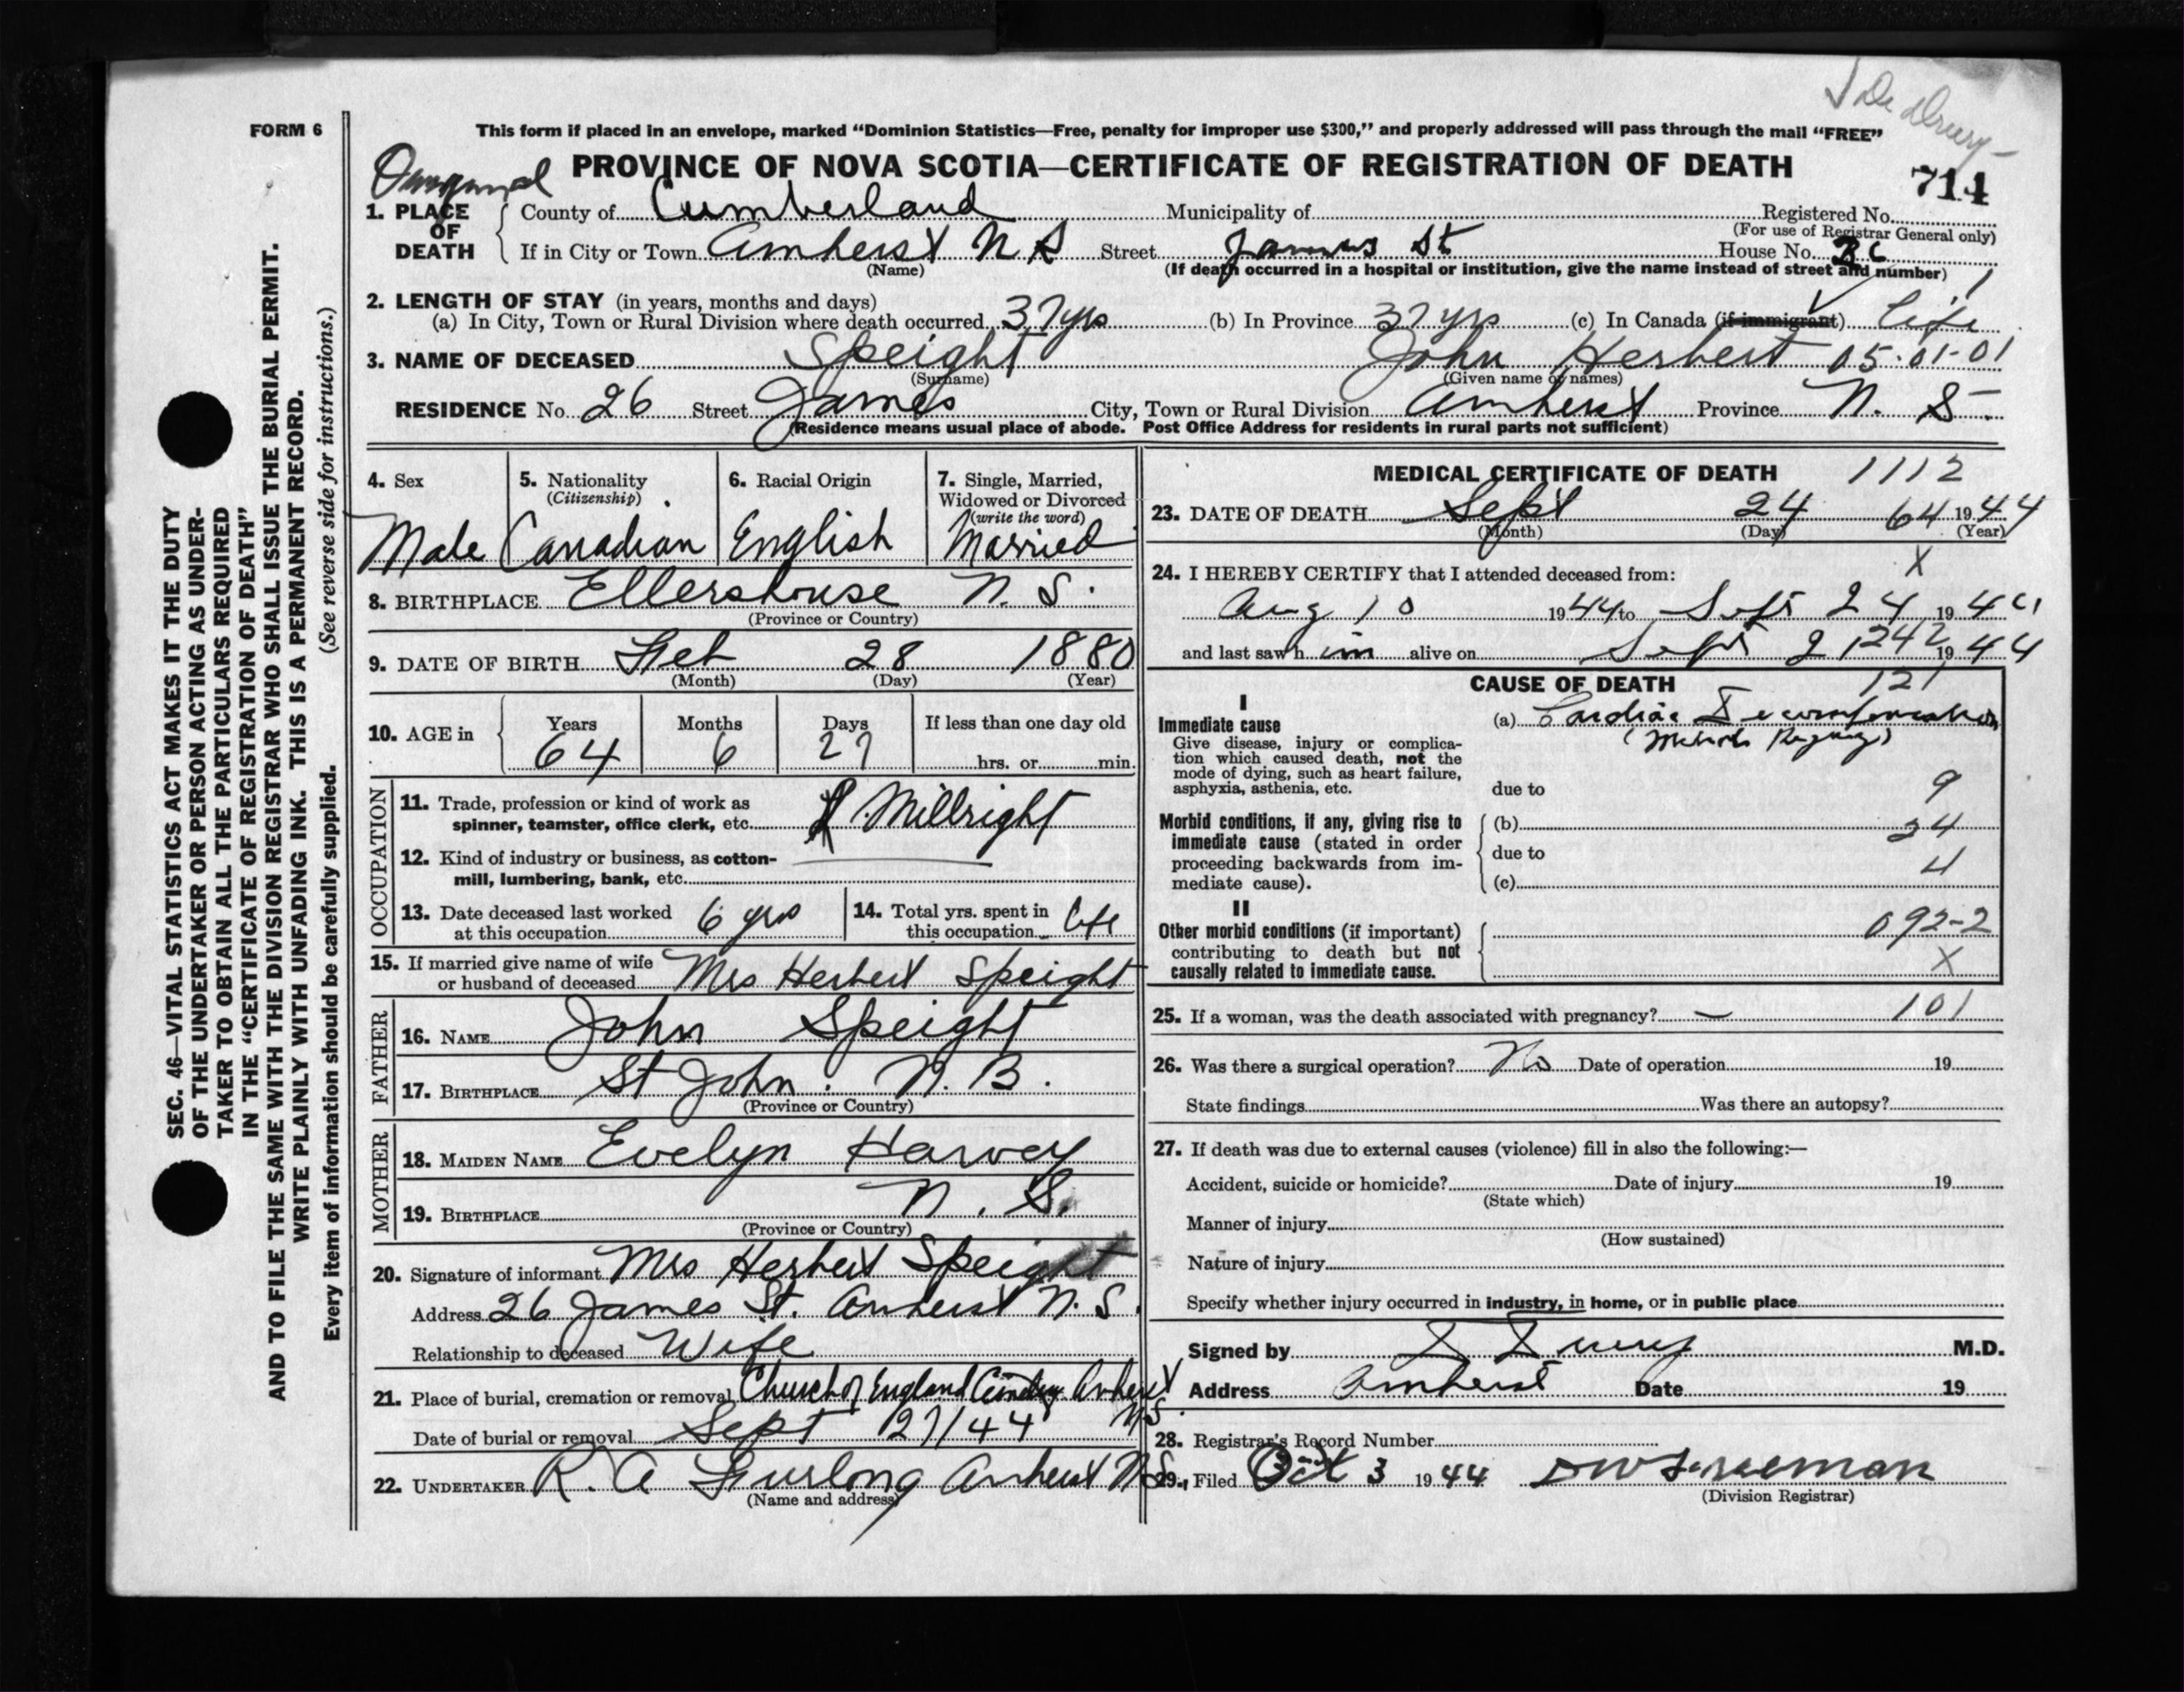 Dr Drury
FORM 6
This form if placed in an envelope, marked “Dominion Statistics—Free, penalty for improper use $300,” and properly addressed will pass through the mail “FREE”
PROVINCE OF NOVA SCOTIA—CERTIFICATE OF REGISTRATION OF DEATH
714
1. PLACE OF DEATH
County of Cumberland Municipality of Registered No.
(For use of Registrar General only)
If in City or Town Amherst N S Street James St House No.
(Name) (If death occurred in a hospital or institution, give the name instead of street and number)
2. LENGTH OF STAY (in years, months and days)
(a) In City, Town or Rural Division where death occurred 37 yrs (b) In Province 37 yrs (c) In Canada (if immigrant) Life
3. NAME OF DECEASED Speight John Herbert 05-01-01
(Surname) (Given name or names)
RESIDENCE No. 26 Street James City, Town or Rural Division Amherst Province N. S.
(Residence means usual place of abode. Post Office Address for residents in rural parts not sufficient)
4. Sex 5. Nationality (Citizenship) 6. Racial Origin 7. Single, Married, Widowed or Divorced (write the word)
Male Canadian English Married
8. BIRTHPLACE Ellershouse N. S.
(Province or Country)
9. DATE OF BIRTH Feb 28 1880
(Month) (Day) (Year)
10. AGE in Years Months Days If less than one day old
64 6 27 hrs. or min.
OCCUPATION
11. Trade, profession or kind of work as spinner, teamster, office clerk, etc. Millright
12. Kind of industry or business, as cotton-mill, lumbering, bank, etc.
13. Date deceased last worked at this occupation 6 yrs 14. Total yrs. spent in this occupation Life
15. If married give name of wife or husband of deceased Mrs Herbert Speight
FATHER
16. NAME John Speight
17. BIRTHPLACE St John. N. B.
(Province or Country)
MOTHER
18. MAIDEN NAME Evelyn Harvey
19. BIRTHPLACE N. S.
(Province or Country)
20. Signature of informant Mrs Herbert Speight
Address 26 James St. Amherst N. S.
Relationship to deceased Wife
21. Place of burial, cremation or removal Church of England Cemetery Amherst N S.
Date of burial or removal Sept 27/44
22. UNDERTAKER R. A Furlong Amherst N S.
(Name and address)
MEDICAL CERTIFICATE OF DEATH 1112
23. DATE OF DEATH Sept 24 64 1944
(Month) (Day) (Year)
X
24. I HEREBY CERTIFY that I attended deceased from:
Aug 10 1944 to Sept 24 1944
and last saw him alive on Sept 1944
CAUSE OF DEATH 121
I
Immediate cause
Give disease, injury or complication which caused death, not the mode of dying, such as heart failure, asphyxia, asthenia, etc.
(a) Cardiac Decompensation
due to 9
Morbid conditions, if any, giving rise to immediate cause (stated in order proceeding backwards from immediate cause).
(b) 34
due to 4
(c)
II
Other morbid conditions (if important) contributing to death but not causally related to immediate cause.
092-2
X
25. If a woman, was the death associated with pregnancy? — 101
26. Was there a surgical operation? No Date of operation 19
State findings Was there an autopsy?
27. If death was due to external causes (violence) fill in also the following:—
Accident, suicide or homicide? Date of injury 19
(State which)
Manner of injury
(How sustained)
Nature of injury
Specify whether injury occurred in industry, in home, or in public place
Signed by D Drury M.D.
Address Amherst Date 19
28. Registrar's Record Number
29. Filed Oct 3 1944
(Division Registrar)
SEC. 46—VITAL STATISTICS ACT MAKES IT THE DUTY
OF THE UNDERTAKER OR PERSON ACTING AS UNDER-
TAKER TO OBTAIN ALL THE PARTICULARS REQUIRED
IN THE “CERTIFICATE OF REGISTRATION OF DEATH”
AND TO FILE THE SAME WITH THE DIVISION REGISTRAR WHO SHALL ISSUE THE BURIAL PERMIT.
WRITE PLAINLY WITH UNFADING INK. THIS IS A PERMANENT RECORD.
Every item of information should be carefully supplied. (See reverse side for instructions.)